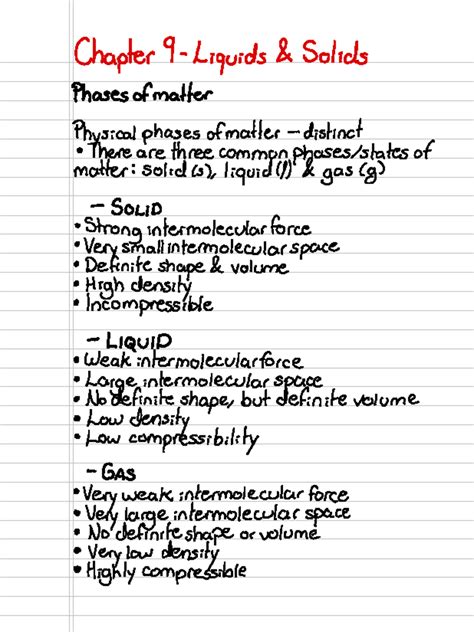 Chapter 9 - Liquids & Solids
Phases of matter
Physical phases of matter – distinct
• There are three common phases/states of
matter: solid (s), liquid (l) & gas (g)
– SOLID
• Strong intermolecular force
• Very small intermolecular space
• Definite shape & volume
• High density
• Incompressible
– LIQUID
• Weak intermolecular force
• Large intermolecular space
• No definite shape, but definite volume
• Low density
• Low compressibility
– GAS
• Very weak intermolecular force
• Very large intermolecular space
• No definite shape or volume
• Very low density
• Highly compressible